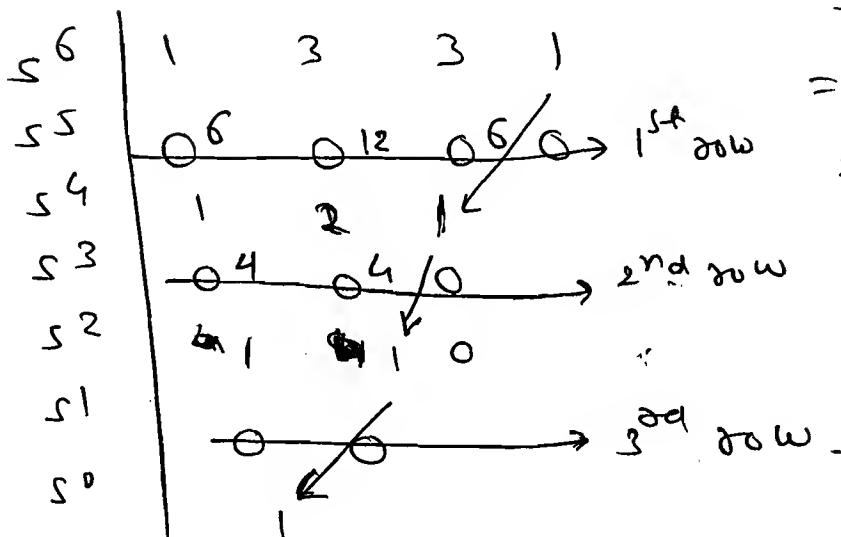 s^6 1 3 3 1 =
s^5 0 6 0 12 0 6 0 1st row
s^4 1 2 1
s^3 0 4 0 4 0 2nd row
s^2 1 1 0
s^1 0 0 3rd row
s^0 1